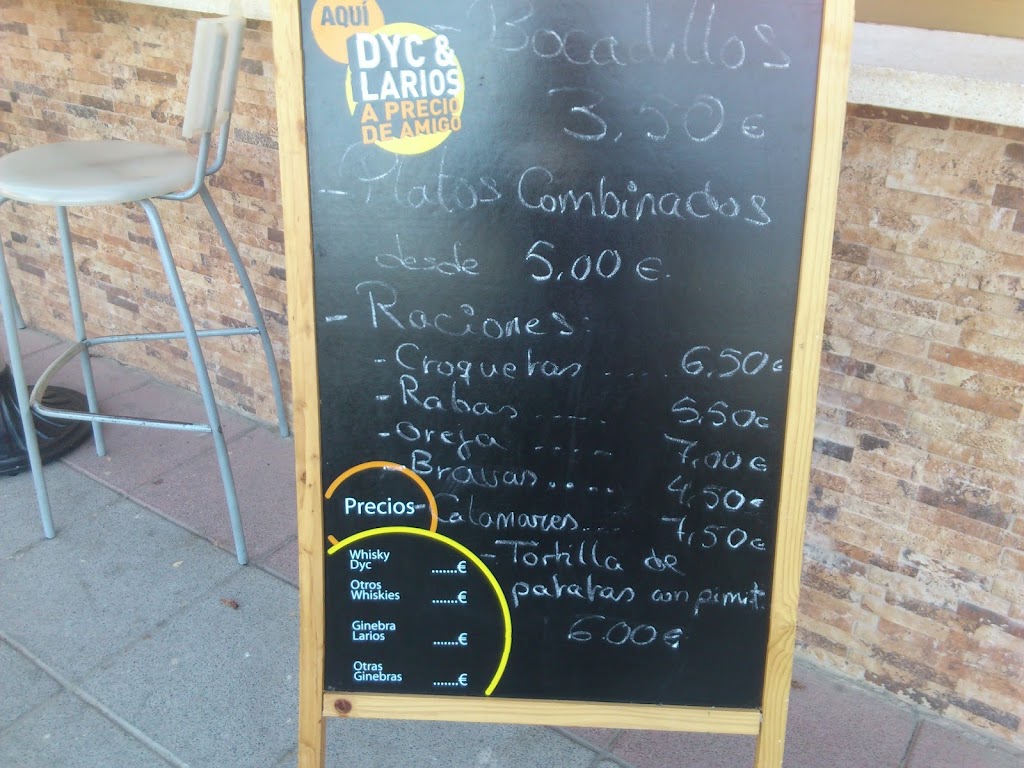 AQUÍ
DYC &
LARIOS
A PRECIO
DE AMIGO
- Bocadillos
3,50 €
- Platos Combinados
desde 5,00 €.
- Raciones:
- Croquetas ..... 6,50 €
- Rabas .... 5,50 €
- Oreja .... 7,00 €
- Bravas .... 4,50 €
- Calamares... 7,50 €
- Tortilla de
patatas con pimit.
6.00 €
Precios
Whisky
Dyc .......€
Otros
Whiskies .......€
Ginebra
Larios .......€
Otras
Ginebras .......€